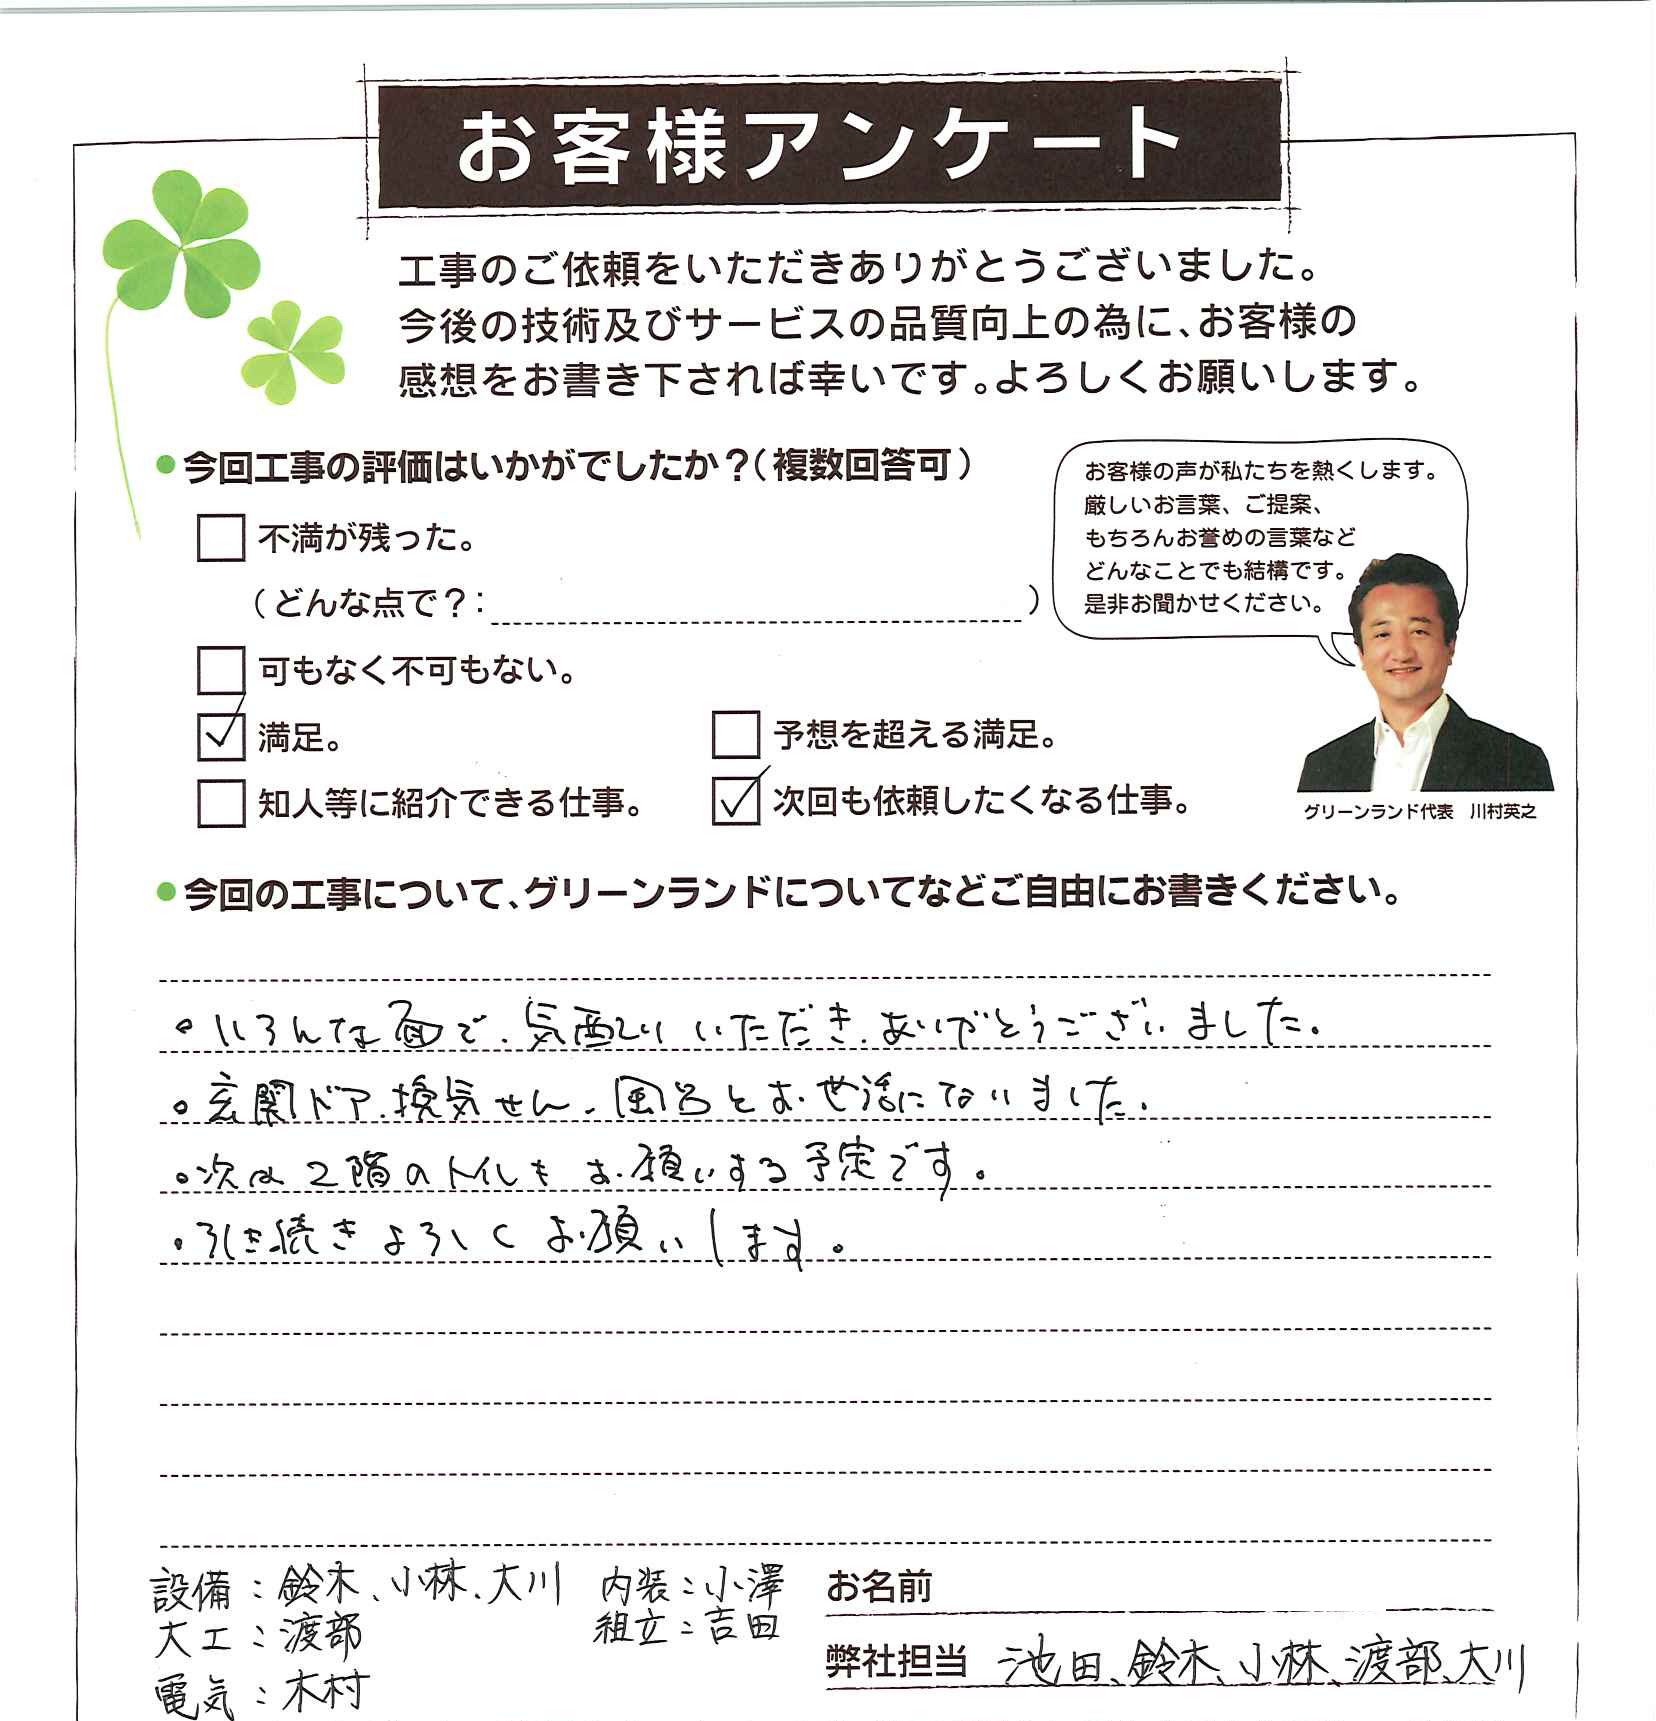 お客様アンケート
工事のご依頼をいただきありがとうございました。
今後の技術及びサービスの品質向上の為に、お客様の
感想をお書き下されば幸いです。よろしくお願いします。
●今回工事の評価はいかがでしたか？（複数回答可）
お客様の声が私たちを熱くします。
厳しいお言葉、ご提案、
もちろんお誉めの言葉など
どんなことでも結構です。
是非お聞かせください。
□不満が残った。
（どんな点で？：　　　　　）
□可もなく不可もない。
☑満足。
□予想を超える満足。
□知人等に紹介できる仕事。
☑次回も依頼したくなる仕事。
グリーンランド代表　川村英之
●今回の工事について、グリーンランドについてなどご自由にお書きください。
。いろんな面で、気配りいただき、ありがとうございました。
。玄関ドア、換気せん、風呂とお世話になりました。
。次は2階のトイレをお願いする予定です。
・引き続きよろしくお願いします。
設備：鈴木、小林、大川
大工：渡部
電気：木村
内装：小澤
組立：吉田
お名前
弊社担当　池田、鈴木、小林、渡部、大川